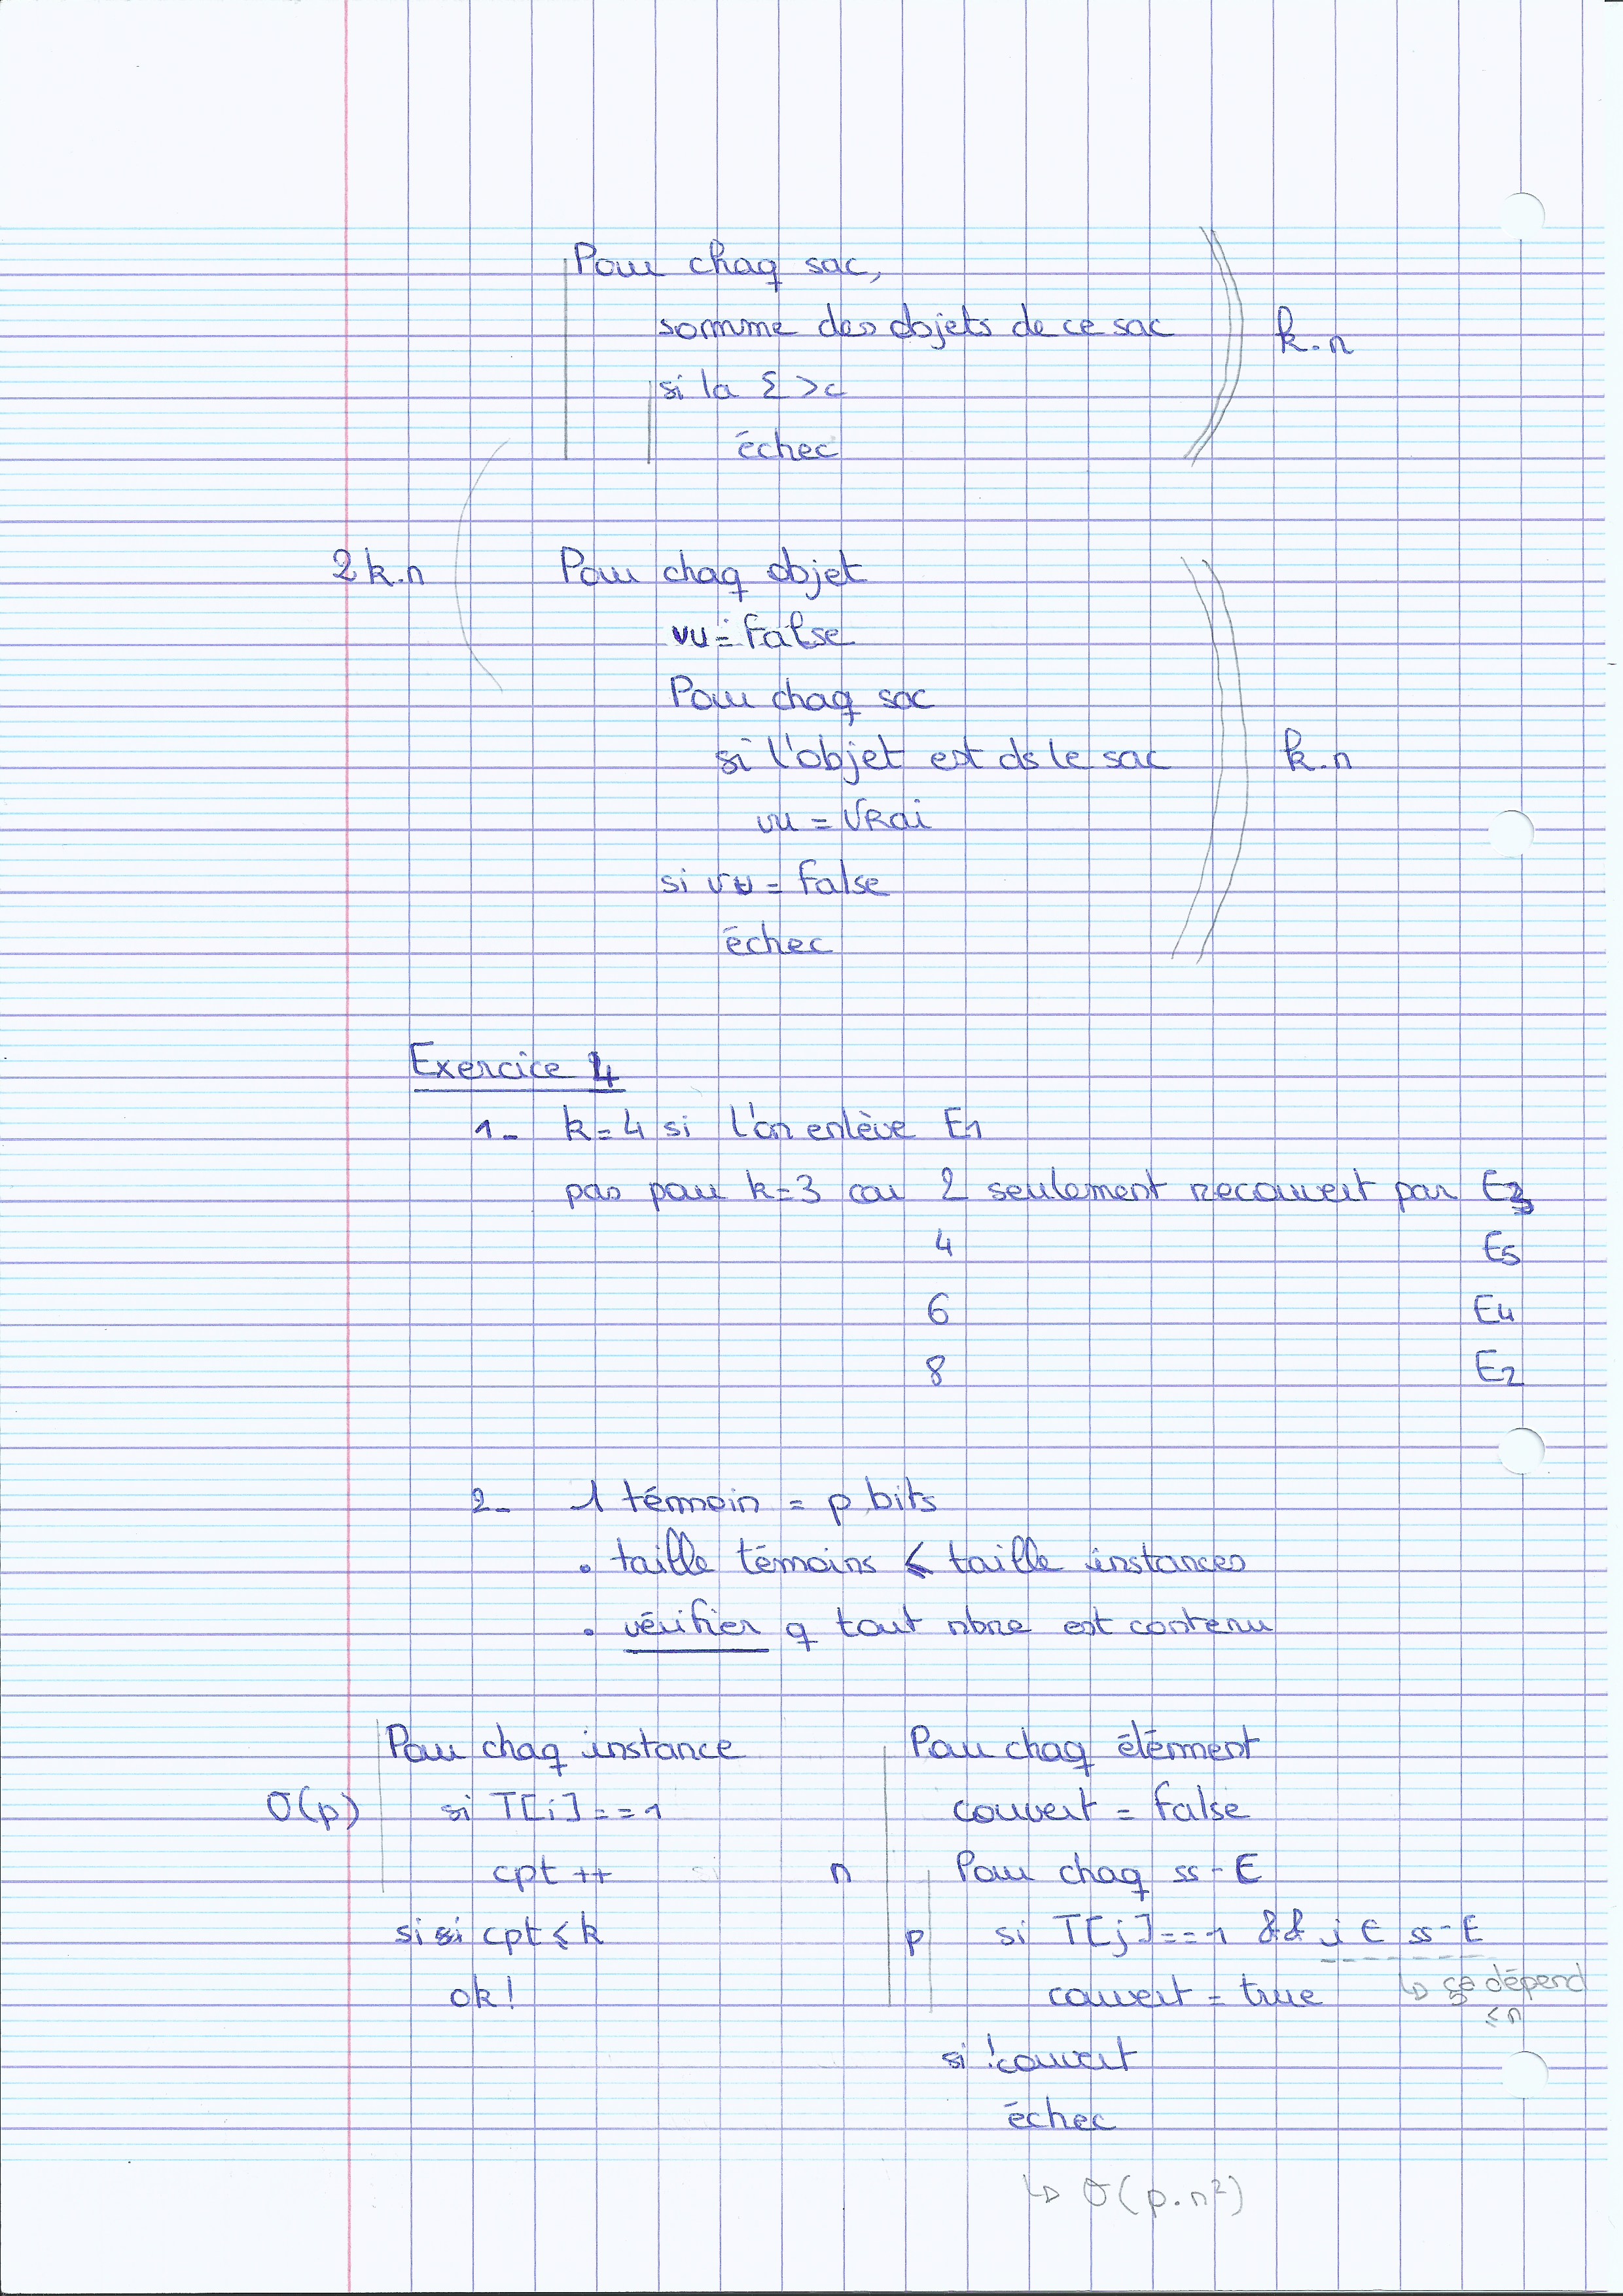 Pour chaq sac,
somme des objets de ce sac
k.n
si la Σ > c
échec
2k.n
Pour chaq objet
vu = False
Pour chaq sac
si l'objet est ds le sac
k.n
vu = Vrai
si vu = False
échec
Exercice 4
1- k=4 si l'on enlève E1
pas pour k=3 car 2 seulement recouvert par E3
4 E5
6 E4
8 E2
2- 1 témoin = p bits
• taille témoins ≤ taille instances
• vérifier q tout nbre est contenu
Pour chaq instance
O(p) si T[i]==1
cpt ++
si cpt ≤ k
ok!
Pour chaq élément
couvert = False
n Pour chaq ss-E
p si T[j]==1 && i ∈ ss-E
couvert = true
↳ ça dépend
≤ n
si !couvert
échec
↳ O(p.n²)